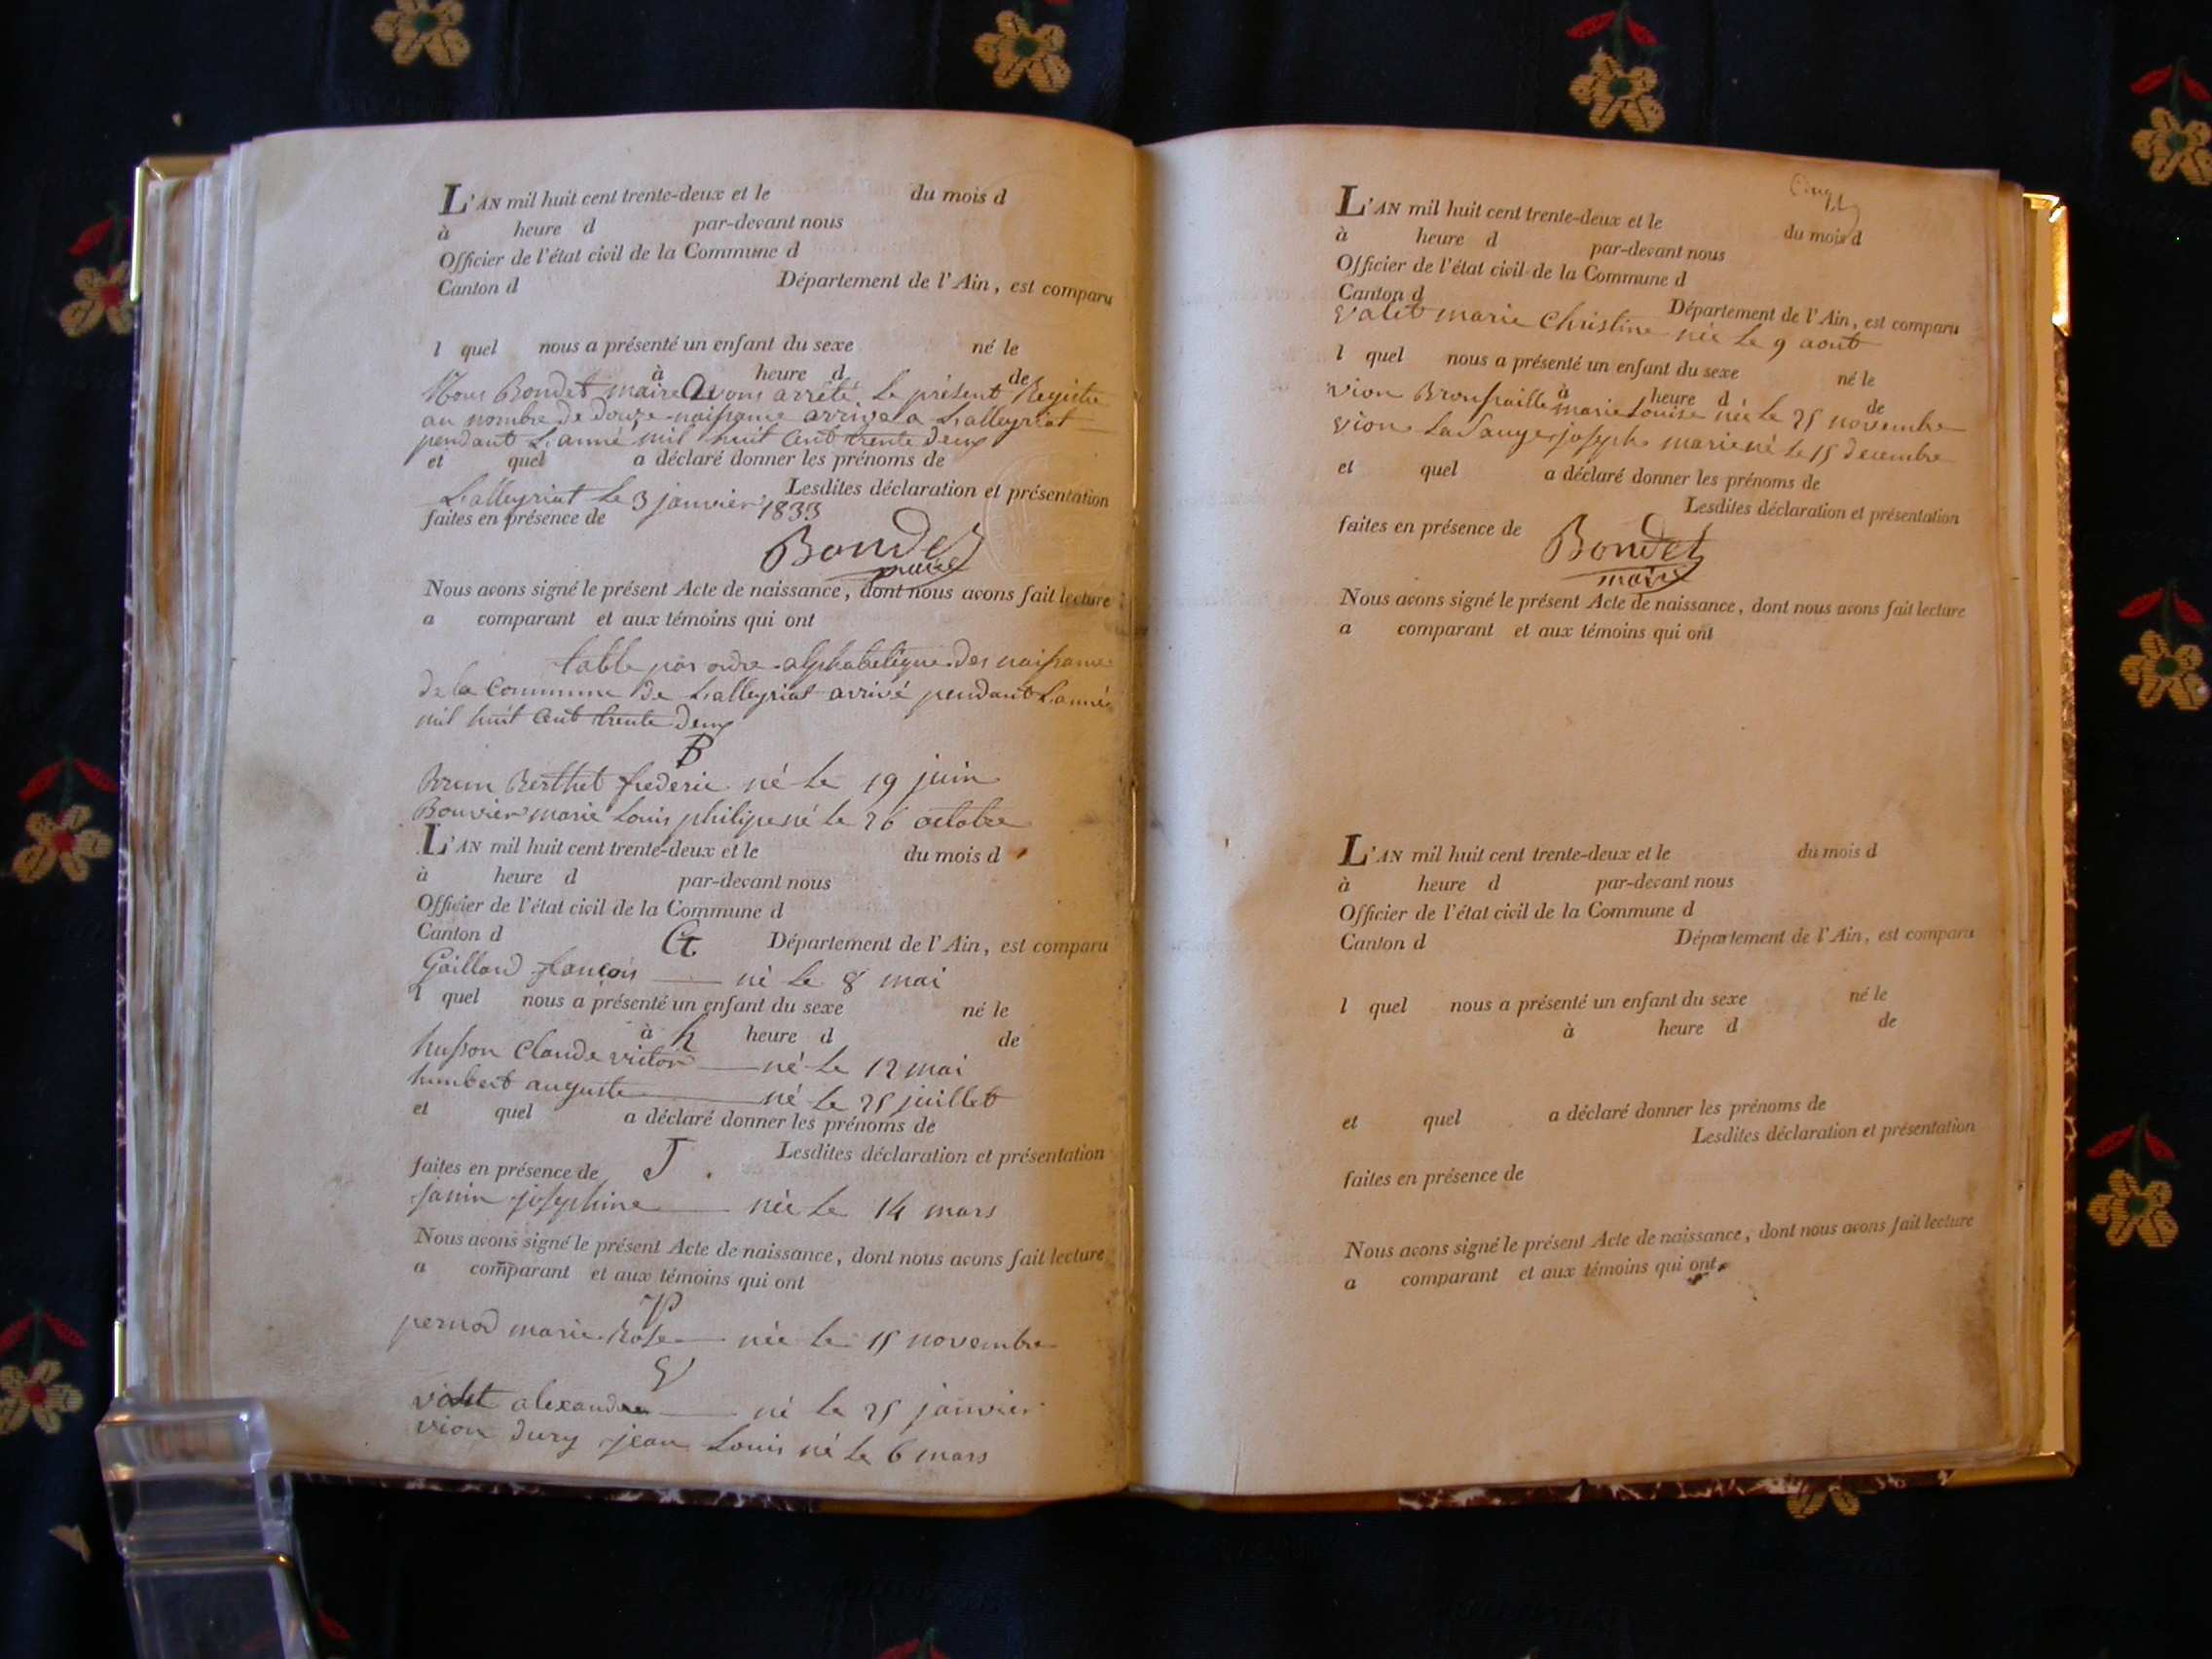 L'AN mil huit cent trente-deux et le du mois d
à heure d par-devant nous
Officier de l'état civil de la Commune d
Canton d Département de l'Ain, est comparu
l quel nous a présenté un enfant du sexe né le
à heure d de
Nous Bondet maire Avons arrêté le présent Registre
au nombre de douze naissance arrivé a Lalleyriat
pendant L'anné mil huit cent trente deux
et quel a déclaré donner les prénoms de
Lesdites déclaration et présentation
Lalleyriat le 3 janvier 1833
faites en présence de
Bondet
maire
Nous avons signé le présent Acte de naissance, dont nous avons fait lecture
a comparant et aux témoins qui ont
table par ordre alphabetique des naissance
de la Commune de Lalleyriat arrivé pendant L'anné
mil huit cent trente deux
B
Brun Berthet frederic né le 19 juin
Bouvier marie Louis philipe né le 26 octobre
L'AN mil huit cent trente-deux et le du mois d
à heure d par-devant nous
Officier de l'état civil de la Commune d
Canton d G Département de l'Ain, est comparu
Gaillard françois né le 8 mai
l quel nous a présenté un enfant du sexe né le
à h heure d de
husson Claude victor né le 12 mai
humbert auguste né le 25 juillet
et quel a déclaré donner les prénoms de
J Lesdites déclaration et présentation
faites en présence de
Janin josephine née le 14 mars
Nous avons signé le présent Acte de naissance, dont nous avons fait lecture
a comparant et aux témoins qui ont
P
pernod marie Rose née le 15 novembre
V
valet alexandre né le 25 janvier
vion dury jean Louis né le 6 mars
L'AN mil huit cent trente-deux et le du mois d
à heure d par-devant nous
Officier de l'état civil de la Commune d
Canton d Département de l'Ain, est comparu
Valet marie Christine née le 9 aout
l quel nous a présenté un enfant du sexe né le
à heure d de
vion Broussaille marie Louise née le 25 novembre
vion Lasauge joseph marie né le 15 decembre
et quel a déclaré donner les prénoms de
Lesdites déclaration et présentation
faites en présence de
Bondet
maire
Nous avons signé le présent Acte de naissance, dont nous avons fait lecture
a comparant et aux témoins qui ont
L'AN mil huit cent trente-deux et le du mois d
à heure d par-devant nous
Officier de l'état civil de la Commune d
Canton d Département de l'Ain, est comparu
l quel nous a présenté un enfant du sexe né le
à heure d de
et quel a déclaré donner les prénoms de
Lesdites déclaration et présentation
faites en présence de
Nous avons signé le présent Acte de naissance, dont nous avons fait lecture
a comparant et aux témoins qui ont